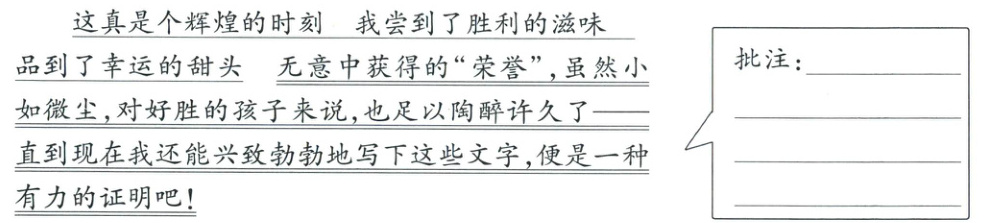 这真是个辉煌的时刻　我尝到了胜利的滋味
品到了幸运的甜头　无意中获得的“荣誉”,虽然小
如微尘,对好胜的孩子来说,也足以陶醉许久了——
直到现在我还能兴致勃勃地写下这些文字,便是一种
有力的证明吧!
批注: